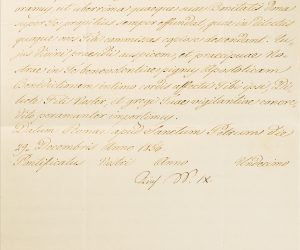 pramus ut uberrima quaeque suae Bonitatis Dona
super Te propitius semper effundat, quae in dilectas
quoque oves Tibi commissas copiose descendant. Au-
spicem, et praecipuae Nos-
trae in Te benevolentiae pignus Apostolicam
Benedictionem intimo cordis affectu Tibi ipsi, Di-
lecte Fili Noster, et gregi Tuae vigilantiae concre-
dito peramanter impertimur.
Datum Romae apud Sanctum Petrum Die
29. Decembris Anno 1856
Pontificatus Nostri Anno Undecimo
Pius PP. IX.